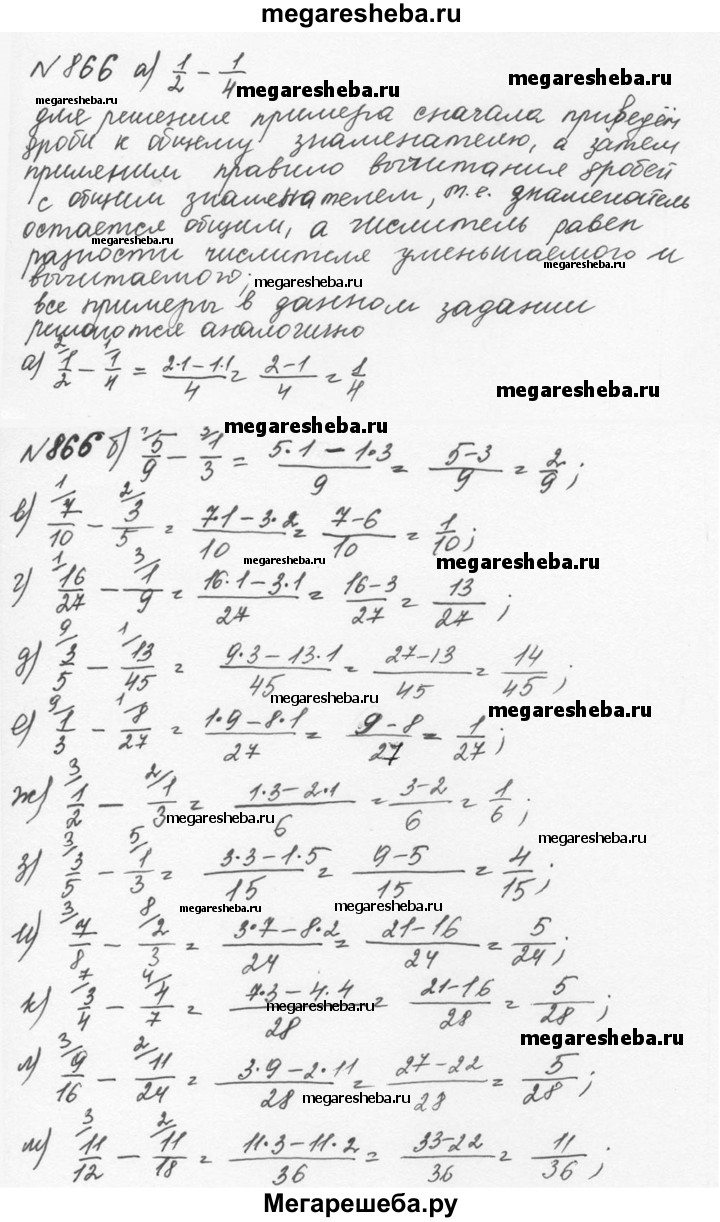 megaresheba.ru
№866 а) 1/2 − 1/4
megaresheba.ru
megaresheba.ru
для решение примера сначала приведём
дроби к общему знаменателю, а затем
применим правило вычитания дробей
с общим знаменателем, т.е. знаменатель
остается общим, а числитель равен
megaresheba.ru
разности числителя уменьшаемого и
megaresheba.ru
вычитаемого;
megaresheba.ru
все примеры в данном задании
решаются аналогично
а) ²⁄1/2 − ¹⁄1/4 = (2·1−1·1)/4 = (2−1)/4 = 1/4
megaresheba.ru
megaresheba.ru
№866 б) ¹⁄5/9 − ³⁄1/3 = (5·1−1·3)/9 = (5−3)/9 = 2/9;
в) ¹⁄7/10 − ²⁄3/5 = (7·1−3·2)/10 = (7−6)/10 = 1/10;
megaresheba.ru
megaresheba.ru
г) ¹⁄16/27 − ³⁄1/9 = (16·1−3·1)/27 = (16−3)/27 = 13/27;
д) ⁹⁄3/5 − ¹⁄13/45 = (9·3−13·1)/45 = (27−13)/45 = 14/45;
megaresheba.ru
megaresheba.ru
е) ⁹⁄1/3 − ¹⁄8/27 = (1·9−8·1)/27 = (9−8)/27 = 1/27;
ж) ³⁄1/2 − ²⁄1/3 = (1·3−2·1)/6 = (3−2)/6 = 1/6;
megaresheba.ru
megaresheba.ru
з) ³⁄3/5 − ⁵⁄1/3 = (3·3−1·5)/15 = (9−5)/15 = 4/15;
megaresheba.ru
и) ³⁄7/8 − ⁸⁄2/3 = (3·7−8·2)/24 = (21−16)/24 = 5/24;
к) ⁷⁄3/4 − ⁴⁄4/7 = (7·3−4·4)/28 = (21−16)/28 = 5/28;
megaresheba.ru
л) ³⁄9/16 − ²⁄11/24 = (3·9−2·11)/28 = (27−22)/28 = 5/28;
megaresheba.ru
м) ³⁄11/12 − ²⁄11/18 = (11·3−11·2)/36 = (33−22)/36 = 11/36;
Мегарешеба.ру